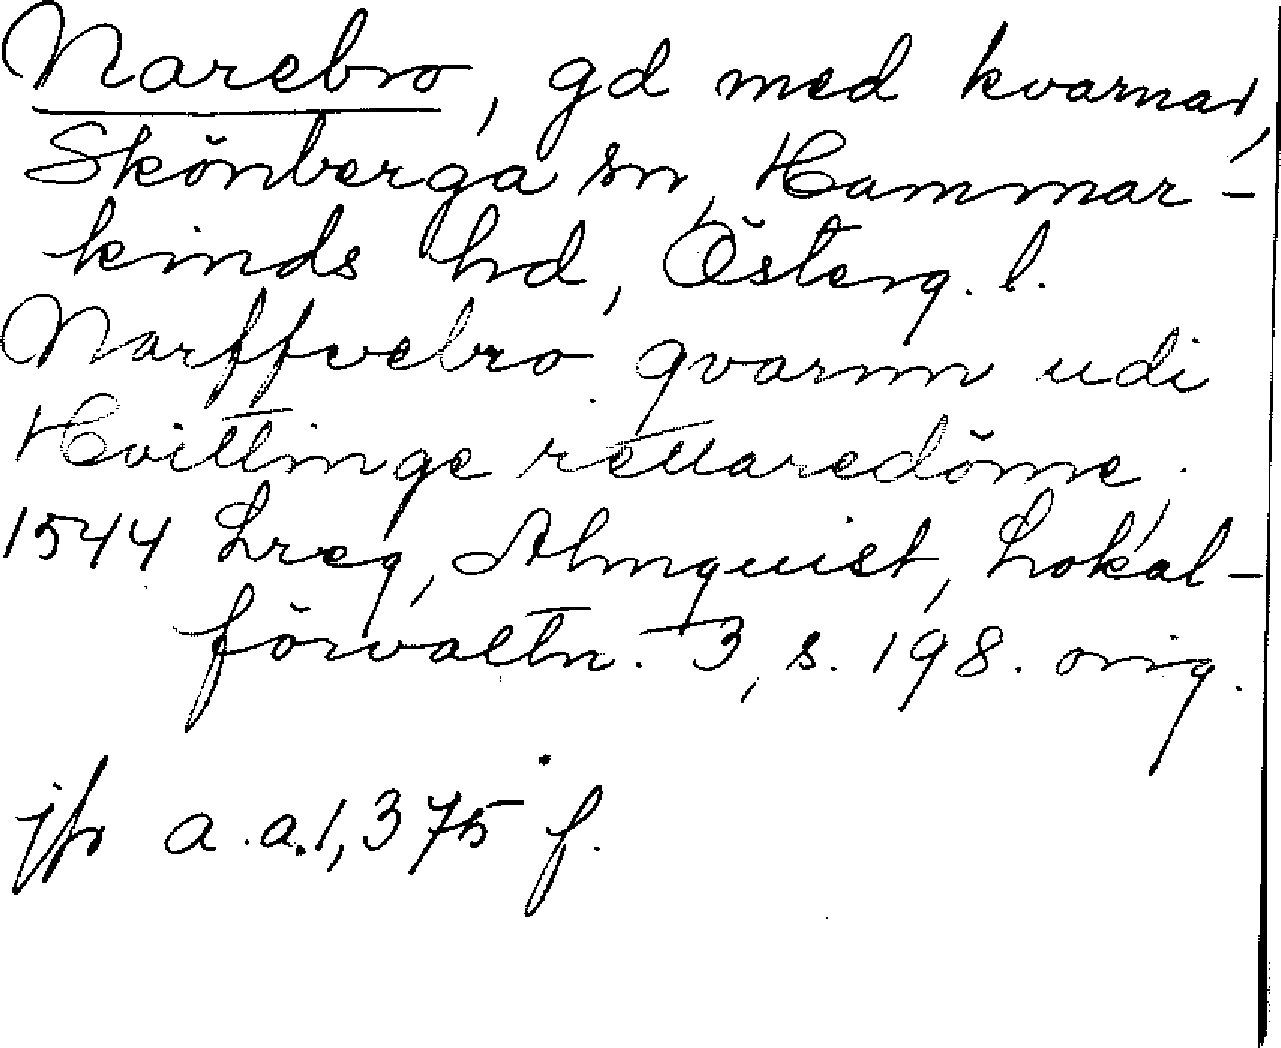 Narebro, gd med kvarnar,
Skönberga sn, Hammar-
kinds hd, Österg. l.
Narffvebro qvarnn udi
Hvittinge rettaredöme,
1544 Lreg, Almquist, Lokal-
förvaltn. 3, s. 198. orig.
jfr a.a. 1, 375 f.